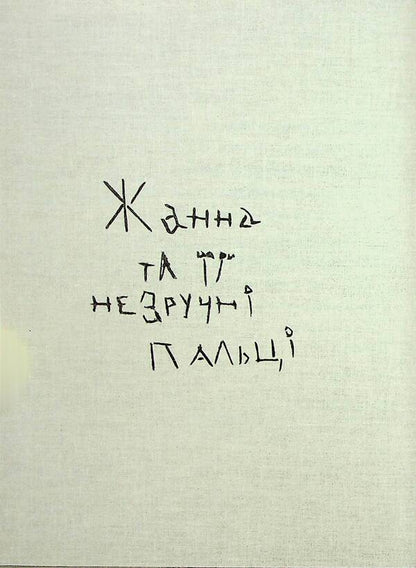 Жанна
та її
незручні
пальці